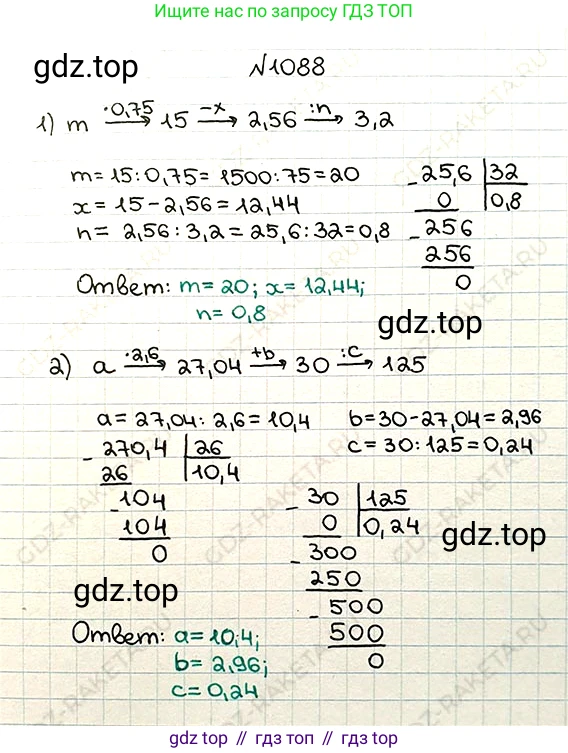 Ищите нас по запросу ГДЗ ТОП
gdz.top
№1088
1) m ·0,75→ 15 −x→ 2,56 :n→ 3,2
m = 15 : 0,75 = 1500 : 75 = 20
x = 15 − 2,56 = 12,44
n = 2,56 : 3,2 = 25,6 : 32 = 0,8
− 25,6 | 32
0 | 0,8
− 256
256
0
Ответ: m = 20; x = 12,44;
n = 0,8
gdz.top
2) a ·2,6→ 27,04 +b→ 30 :c→ 125
a = 27,04 : 2,6 = 10,4
b = 30 − 27,04 = 2,96
c = 30 : 125 = 0,24
− 270,4 | 26
26 | 10,4
− 104
104
0
− 30 | 125
0 | 0,24
− 300
250
− 500
500
0
gdz.top
gdz.top
Ответ: a = 10,4;
b = 2,96;
c = 0,24
GDZ-RAKETA.RU
gdz.top // гдз топ // гдз.топ